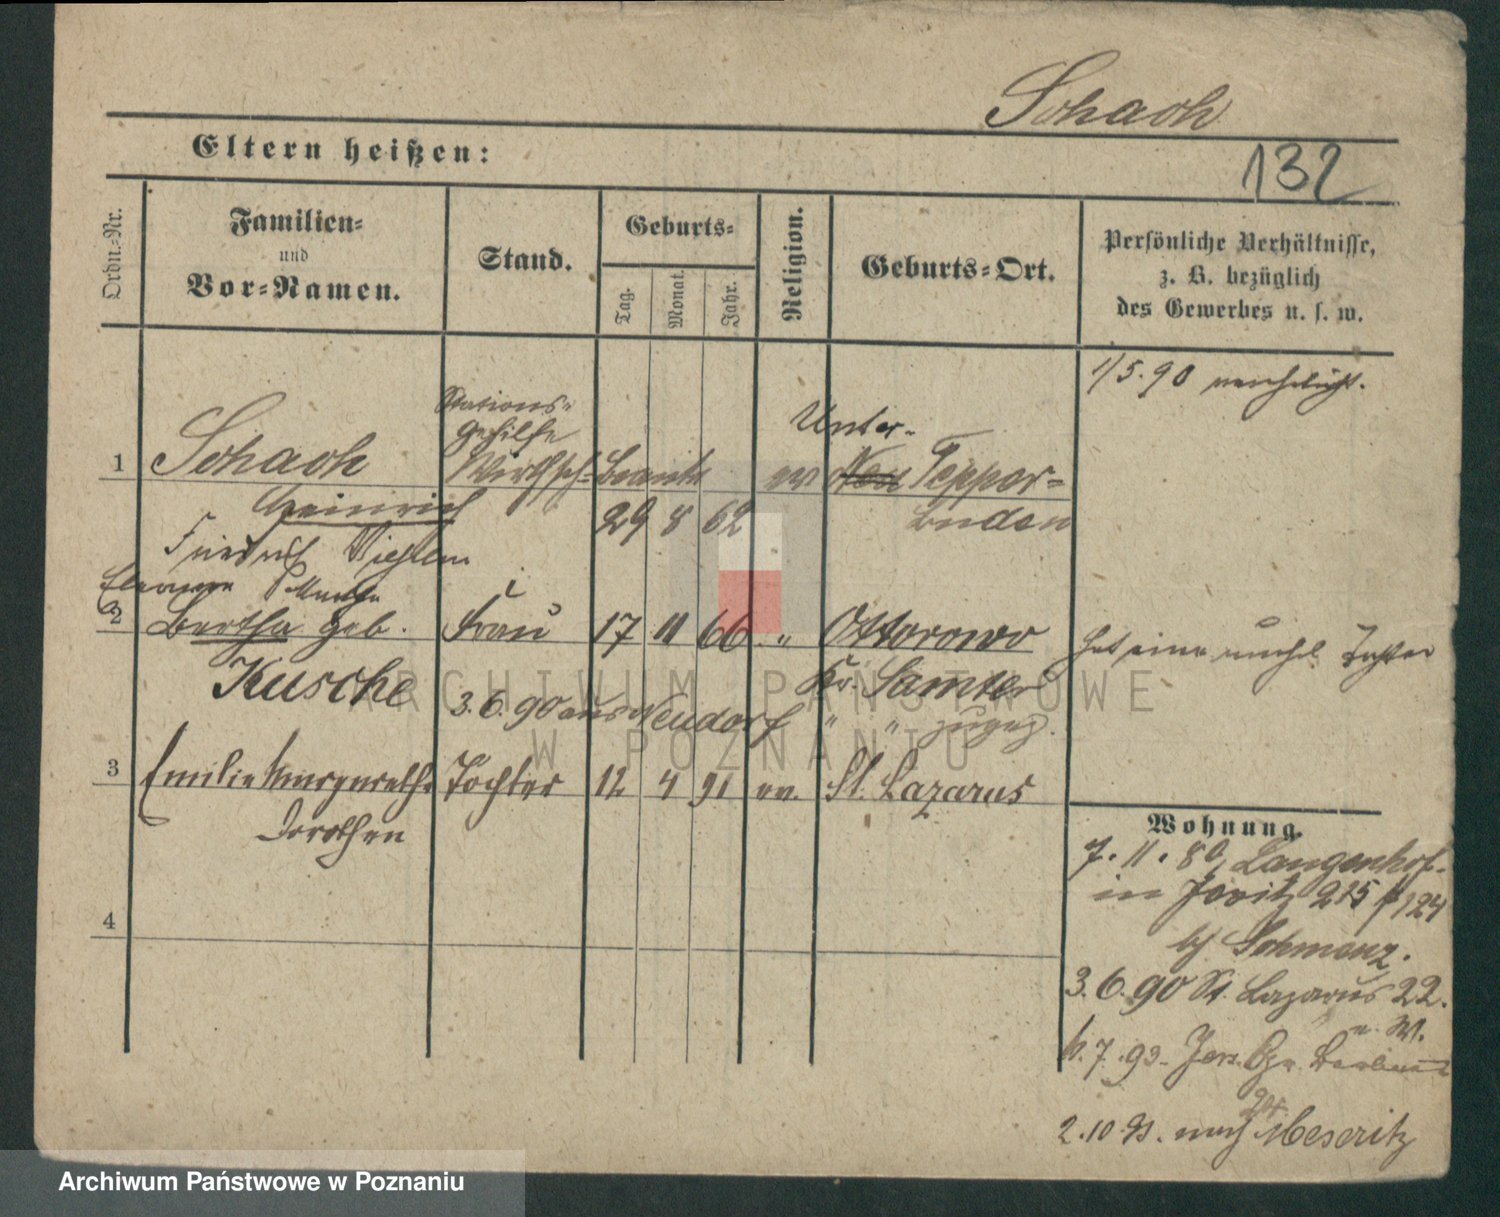 Schach
Eltern heißen:
132
Ordn.-Nr.
Familien-
und
Vor-Namen.
Stand.
Geburts-
Tag.
Monat.
Jahr.
Religion.
Geburts-Ort.
Persönliche Verhältnisse,
z. B. bezüglich
des Gewerbes u. s. w.
1/5.90 verehelicht.
Stations-
gehilfe
Unter-
1 Schach Wirthsch.-Beamte ev Neu Tepper-
Heinrich 29 8 62 buden
Friedrich Wilhelm
Eleonore
2 Bertha geb. Frau 17 11 66 " Ottorowo hat eine unehel. Tochter
Kusche Kr. Samter
3.6.90 aus Neudorf " " zugez.
3 Emilie Margarethe Tochter 12 4 91 ev. St. Lazarus
Dorothea
4
Wohnung.
7. 11. 86 Langenhof-
in Jersitz 215
bei
3.6.90 St. Lazarus 22.
7. 93
2.10.91. nach Meseritz
ARCHIWUM PAŃSTWOWE
W POZNANIU
Archiwum Państwowe w Poznaniu